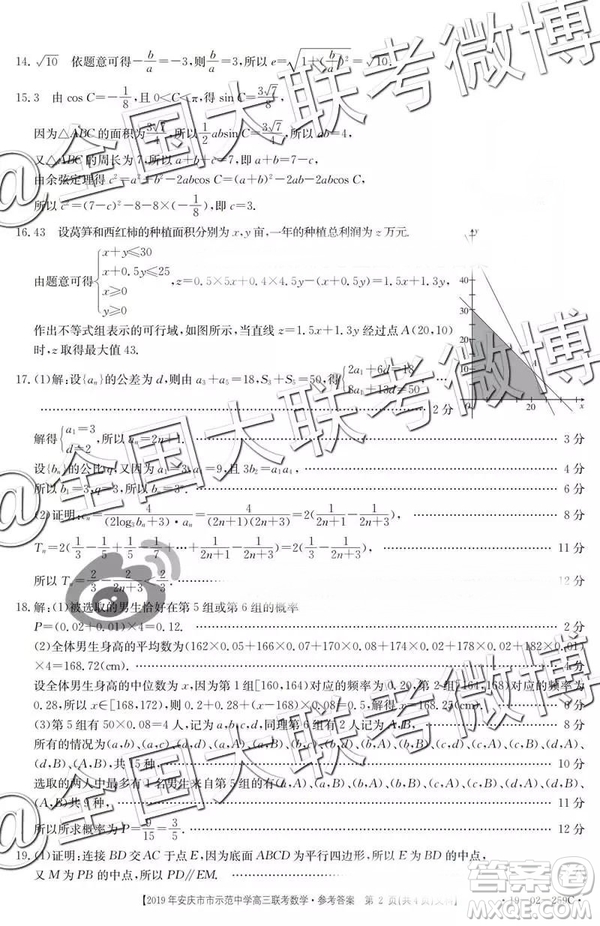 14. √10 依题意可得-b/a=-3,则b/a=3,所以e=√(1+(b/a)²)=√10.
15. 3 由cos C=-1/8,且0<C<π,得sin C=3√7/8,
因为△ABC的面积为3√7/4,所以1/2 absin C=3√7/4,所以ab=4,
又△ABC的周长为7,所以a+b+c=7,所以a+b=7-c,
由余弦定理得c²=a²+b²-2abcos C=(a+b)²-2ab-2abcos C,
所以c²=(7-c)²-8-8×(-1/8),所以c=3.
16. 43 设莴笋和西红柿的种植面积分别为x,y亩,一年的种植总利润为z万元.
由题意可得{x+y≤30 x+0.5y≤25 x≥0 y≥0,z=0.5×5x+0.4×4.5y-(x+0.5y)=1.5x+1.3y,
作出不等式组表示的可行域,如图所示,当直线z=1.5x+1.3y经过点A(20,10)
时,z取得最大值43.
y
40
30
20
10
O 20 x
A
17. (1)解:设{aₙ}的公差为d,则由a₃+a₅=18,S₃+S₅=50,得{2a₁+6d=18, 8a₁+13d=50,
2分
解得{a₁=3 d=2,所以aₙ=2n+1. 3分
设{bₙ}的公比q,又因为a₁=3,a₄=9,且3b₂=a₁a₄,
所以b₁=3,q=3,所以bₙ=3ⁿ. 6分
(2)证明:cₙ=4/((2log₃bₙ+3)·aₙ)=4/((2n+1)(2n+3))=2(1/(2n+1)-1/(2n+3)). 8分
Tₙ=2(1/3-1/5+1/5-1/7+…+1/(2n+1)-1/(2n+3)) 11分
所以Tₙ=2/3-2/(2n+3)<2/3. 12分
18. 解:(1)被选取的男生恰好在第5组或第6组的概率
P=(0.02+0.01)×4=0.12. 2分
(2)全体男生身高的平均数为(162×0.05+166×0.07+170×0.08+174×0.02+178×0.02+182×0.01)
×4=168.72(cm). 4分
设全体男生身高的中位数为x,因为第1组[160,164)对应的频率为0.20,第2组对应的频率为
0.28,所以x∈[168,172),则0.2+0.28+(x-168)×0.08=0.5,解得x=168.25(cm). 6分
(3)第5组有50×0.08=4人,记为a,b,c,d,同理第6组有2人记为A,B, 8分
所有的情况为(a,b),(a,c),(a,d),(a,A),(a,B),(b,c),(b,d),(b,A),(b,B),(c,d),(c,A),(c,B),(d,A),
(d,B),(A,B),共15种. 10分
选取的两人中最多有1名男生来自第5组的有(a,A),(a,B),(b,A),(b,B),(c,A),(c,B),(d,A),(d,B),(A,
B)共9种. 11分
所以所求概率为P=9/15=3/5. 12分
19. (1)证明:连接BD交AC于点E,因为底面ABCD为平行四边形,所以E为BD的中点.
又M为PB的中点,所以ME∥PD. 2分
【2019年安庆市市示范中学高三联考数学·参考答案 第2页(共4页)文科】
·19-02-259C·
@全国大联考微博
@全国大联考微博
@全国大联考微博